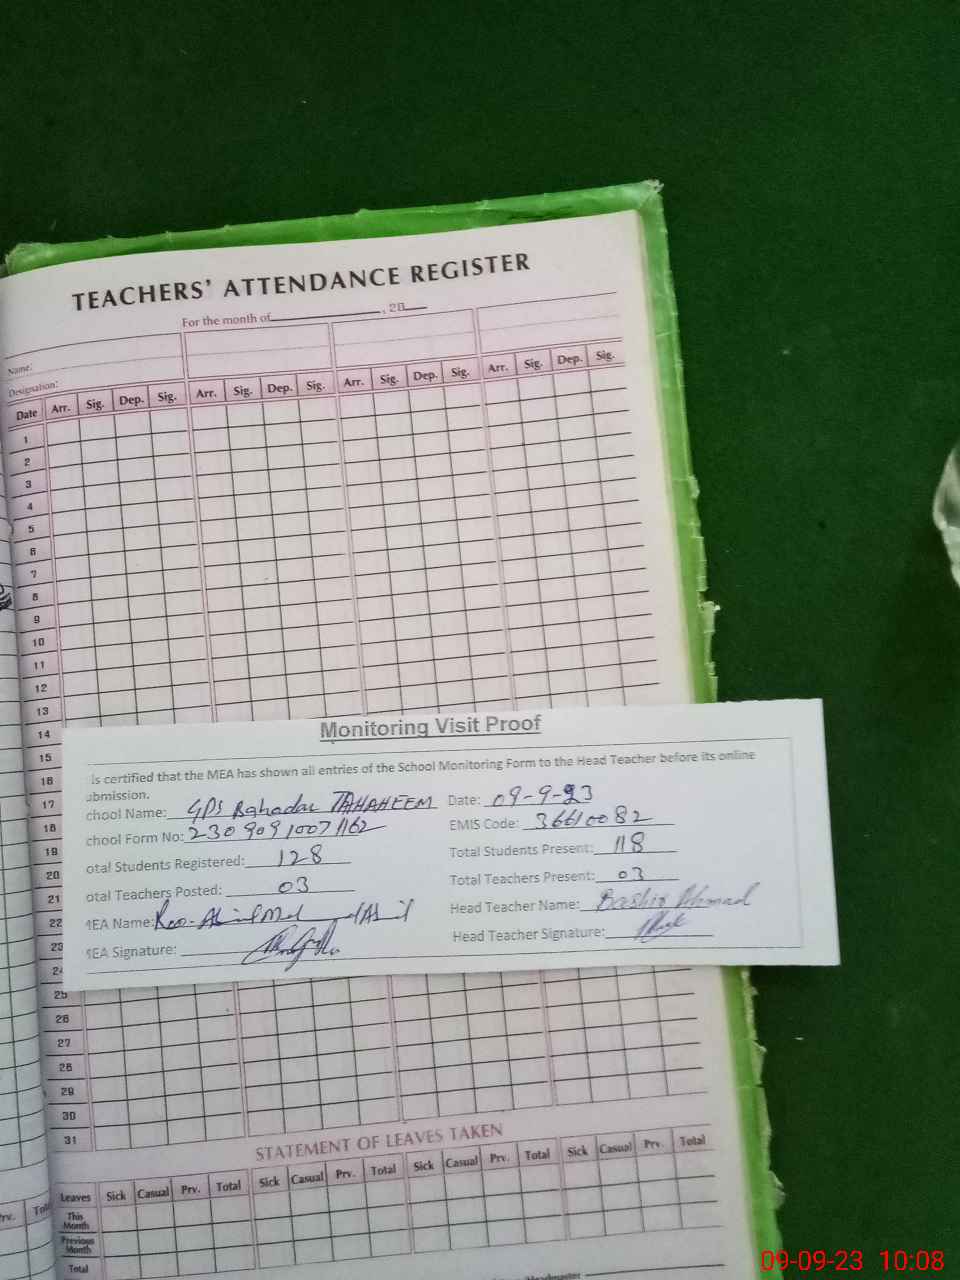 TEACHERS' ATTENDANCE REGISTER
For the month of , 20
Name:
Designation:
Date Arr. Sig. Dep. Sig. Arr. Sig. Dep. Sig. Arr. Sig. Dep. Sig. Arr. Sig. Dep. Sig.
1
2
3
4
5
6
7
8
9
10
11
12
13
14
15
16
17
18
19
20
21
22
23
24
25
26
27
28
29
30
31
Monitoring Visit Proof
is certified that the MEA has shown all entries of the School Monitoring Form to the Head Teacher before its online
ubmission.
chool Name: GPS Bahadar TAHAHEEM Date: 09-9-23
chool Form No: 23090910071162 EMIS Code: 36610082
otal Students Registered: 128 Total Students Present: 118
otal Teachers Posted: 03 Total Teachers Present: 03
MEA Name: Head Teacher Name: Bashir Ahmad
MEA Signature: Head Teacher Signature:
STATEMENT OF LEAVES TAKEN
Leaves Sick Casual Prv. Total Sick Casual Prv. Total Sick Casual Prv. Total Sick Casual Prv. Total
This Month
Previous Month
Total
09-09-23 10:08